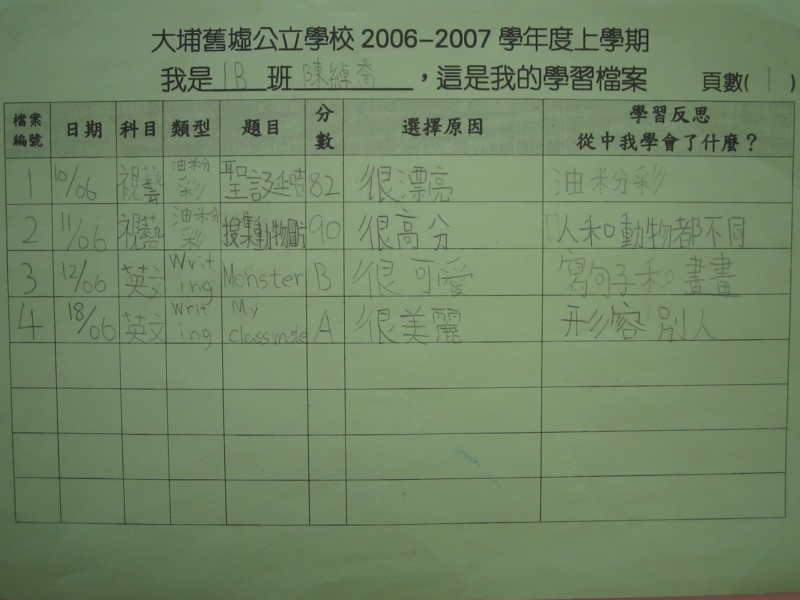 大埔舊墟公立學校 2006-2007 學年度上學期
我是 1B 班 陳綽喬 ，這是我的學習檔案 頁數( 1 )
檔案編號 日期 科目 類型 題目 分數 選擇原因 學習反思 從中我學會了什麼？
1 10/06 視藝 油粉彩 聖誕 82 很漂亮 油粉彩
2 11/06 視藝 油粉彩 搜集動物園 90 很高分 人和動物都不同
3 12/06 英文 Writing Monster B 很可愛 寫句子和畫畫
4 18/06 英文 Writing My classmate A 很美麗 形容別人